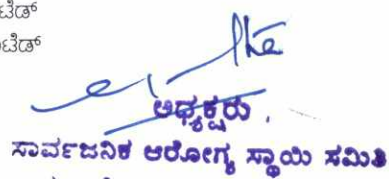 ಟೆಡ್
ಟೆಡ್
ಅಧ್ಯಕ್ಷರು,
ಸಾರ್ವಜನಿಕ ಆರೋಗ್ಯ ಸ್ಥಾಯಿ ಸಮಿತಿ